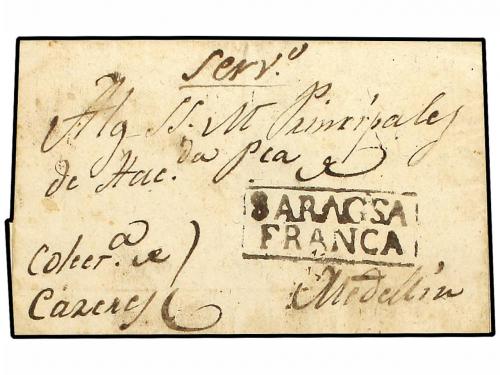 Serv.º
A lg SS. M Principales
de Hac.da Pca
SARAGSA
FRANCA
Colecr.a de
Cazeres
Medellin